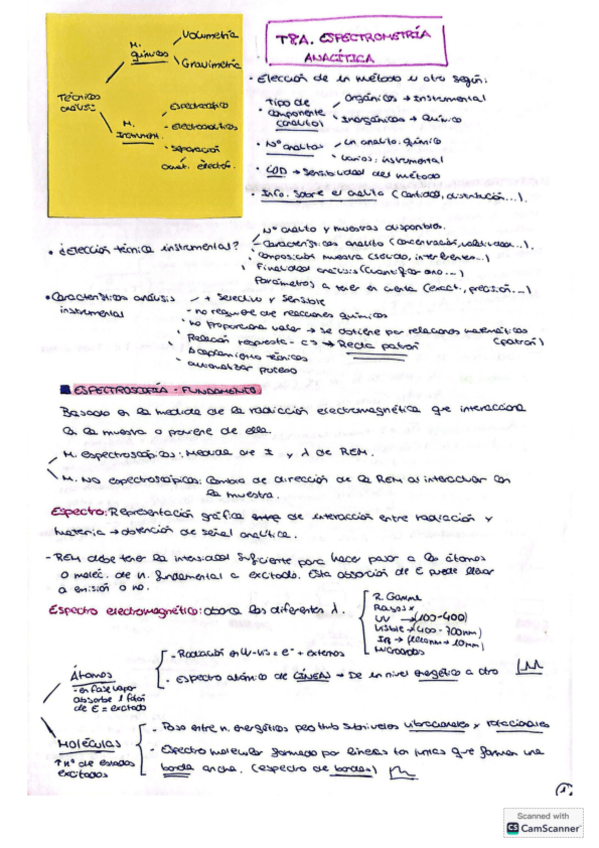 T8A. ESPECTROMETRÍA
ANALÍTICA
Técnicas
análisis
M.
químicos
Volumetría
Gravimetría
M.
Instrumen.
Espectroscópico
- electroanalíticos
Separación
cont. electrón.
• Elección de un método u otro según:
• Tipo de
componente
(analito)
Orgánicos → Instrumental
Inorgánicos → Químico
• Nº analitos
Un analito: químico
Varios: instrumental
• LOD → Sensibilidad del método
• Info. sobre el analito (cantidad, distribución...).
• ¿Elección técnica instrumental?
Nº analito y muestras disponibles.
- Características analito (concentración, ...).
Composición muestra (sólido, interferentes...)
Finalidad análisis (cuantificar o no...)
Parámetros a tener en cuenta (exact., precisión...)
• Características análisis
instrumental
+ selectivo y sensible
- no requiere de reacciones químicas
• no proporciona valor → se obtiene por relaciones matemáticas
(patrón)
Relación respuesta - cs → Recta patrón
Acoplamiento técnicas
automatizar proceso
ESPECTROSCOPÍA - FUNDAMENTO.
Basado en la medida de la radiación electromagnética que interacciona
con la muestra o proviene de ella.
M. espectroscópicos: Medida de I y λ de REM.
M. NO espectroscópicos: Cambio de dirección de la REM al interactuar con
la muestra.
Espectro: Representación gráfica de interacción entre radiación y
materia → obtención de señal analítica.
- REM debe tener la intensidad suficiente para hacer pasar a los átomos
o moléc. de n. fundamental a excitado. Esta absorción de E puede llevar
a emisión o no.
Espectro electromagnético: abarca las diferentes λ.
R. Gamma
Rayos x
UV → (100-400)
Visible → (400-700nm)
IR →
Microondas
Átomos
- en fase vapor
absorbe 1 fotón
de E = excitado
- Radiación en UV-vis = e⁻ + externos
- Espectro atómico de LÍNEAS → De un nivel energético a otro
Moléculas
↑ nº de estados
excitados
- Paso entre n. energéticos pero tmb subniveles vibracionales y rotacionales
- Espectro molecular formado por líneas tan juntas que forman una
banda ancha. (espectro de bandas)
1
Scanned with
CS CamScanner